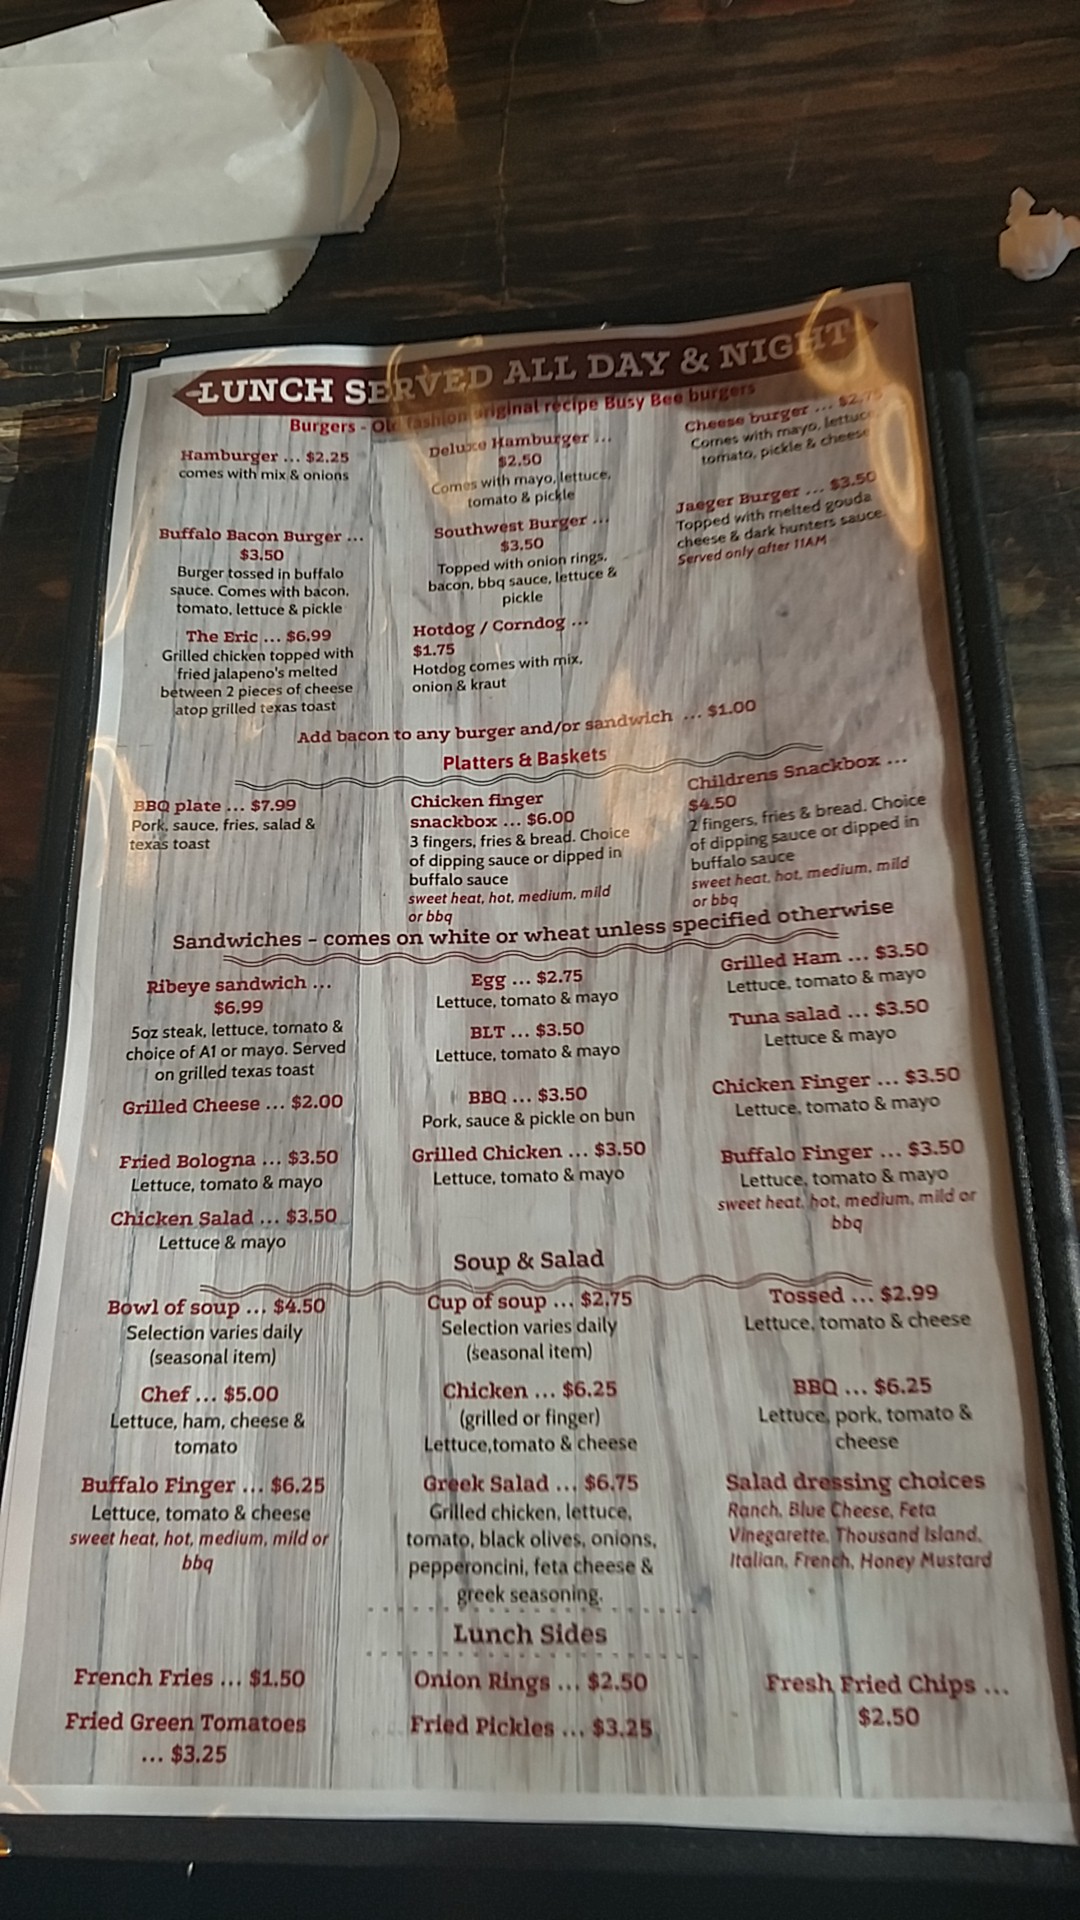 LUNCH SERVED ALL DAY & NIGHT
Burgers - Old fashion original recipe Busy Bee burgers
Hamburger ... $2.25
comes with mix & onions
Deluxe Hamburger ...
$2.50
Comes with mayo, lettuce,
tomato & pickle
Cheese burger ... $2.75
Comes with mayo, lettuce
tomato, pickle & cheese
Buffalo Bacon Burger ...
$3.50
Burger tossed in buffalo
sauce. Comes with bacon,
tomato, lettuce & pickle
Southwest Burger ...
$3.50
Topped with onion rings,
bacon, bbq sauce, lettuce &
pickle
Jaeger Burger ... $3.50
Topped with melted gouda
cheese & dark hunters sauce.
Served only after 11AM
The Eric ... $6.99
Grilled chicken topped with
fried jalapeno's melted
between 2 pieces of cheese
atop grilled texas toast
Hotdog / Corndog ...
$1.75
Hotdog comes with mix,
onion & kraut
Add bacon to any burger and/or sandwich ... $1.00
Platters & Baskets
BBQ plate ... $7.99
Pork, sauce, fries, salad &
texas toast
Chicken finger
snackbox ... $6.00
3 fingers, fries & bread. Choice
of dipping sauce or dipped in
buffalo sauce
sweet heat, hot, medium, mild
or bbq
Childrens Snackbox ...
$4.50
2 fingers, fries & bread. Choice
of dipping sauce or dipped in
buffalo sauce
sweet heat, hot, medium, mild
or bbq
Sandwiches - comes on white or wheat unless specified otherwise
Ribeye sandwich ...
$6.99
5oz steak, lettuce, tomato &
choice of A1 or mayo. Served
on grilled texas toast
Egg ... $2.75
Lettuce, tomato & mayo
Grilled Ham ... $3.50
Lettuce, tomato & mayo
BLT ... $3.50
Lettuce, tomato & mayo
Tuna salad ... $3.50
Lettuce & mayo
Grilled Cheese ... $2.00
BBQ ... $3.50
Pork, sauce & pickle on bun
Chicken Finger ... $3.50
Lettuce, tomato & mayo
Fried Bologna ... $3.50
Lettuce, tomato & mayo
Grilled Chicken ... $3.50
Lettuce, tomato & mayo
Buffalo Finger ... $3.50
Lettuce, tomato & mayo
sweet heat, hot, medium, mild or
bbq
Chicken Salad ... $3.50
Lettuce & mayo
Soup & Salad
Bowl of soup ... $4.50
Selection varies daily
(seasonal item)
Cup of soup ... $2.75
Selection varies daily
(seasonal item)
Tossed ... $2.99
Lettuce, tomato & cheese
Chef ... $5.00
Lettuce, ham, cheese &
tomato
Chicken ... $6.25
(grilled or finger)
Lettuce,tomato & cheese
BBQ ... $6.25
Lettuce, pork, tomato &
cheese
Buffalo Finger ... $6.25
Lettuce, tomato & cheese
sweet heat, hot, medium, mild or
bbq
Greek Salad ... $6.75
Grilled chicken, lettuce,
tomato, black olives, onions,
pepperoncini, feta cheese &
greek seasoning.
Salad dressing choices
Ranch, Blue Cheese, Feta
Vinegarette, Thousand Island,
Italian, French, Honey Mustard
Lunch Sides
French Fries ... $1.50
Onion Rings ... $2.50
Fresh Fried Chips ...
$2.50
Fried Green Tomatoes
... $3.25
Fried Pickles ... $3.25